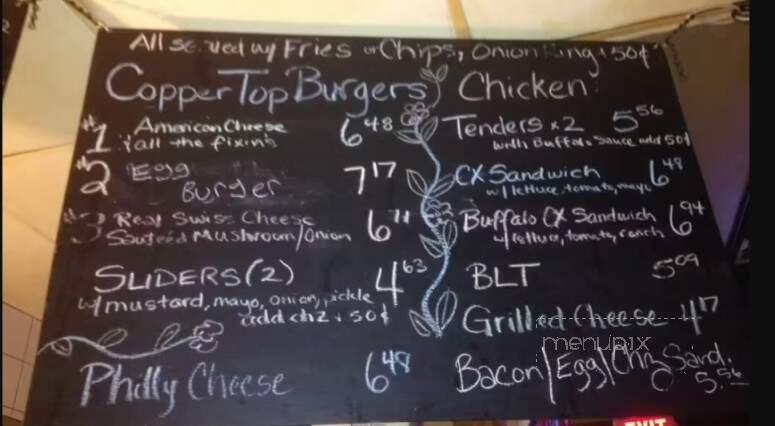 All served w/ Fries or Chips, Onion Ring + 50¢
Copper Top Burgers
#1 American Cheese 6 48
+ all the fixin's
#2 Egg
Burger 7 17
#3 Real Swiss Cheese
Sauteed Mushroom/Onion 6
SLIDERS (2) 4 63
w/ mustard, mayo, onion, pickle
add chz + 50¢
Philly Cheese 6 48
Chicken
Tenders x2 5 56
with Buffalo Sauce add 50¢
CX Sandwich 6 48
w/ lettuce, tomato, mayo
Buffalo CX Sandwich 6 94
w/ lettuce, tomato, ranch
BLT 5 09
Grilled Cheese 4 17
menupix
Bacon/Egg/Chz Sand. 5.56
EXIT